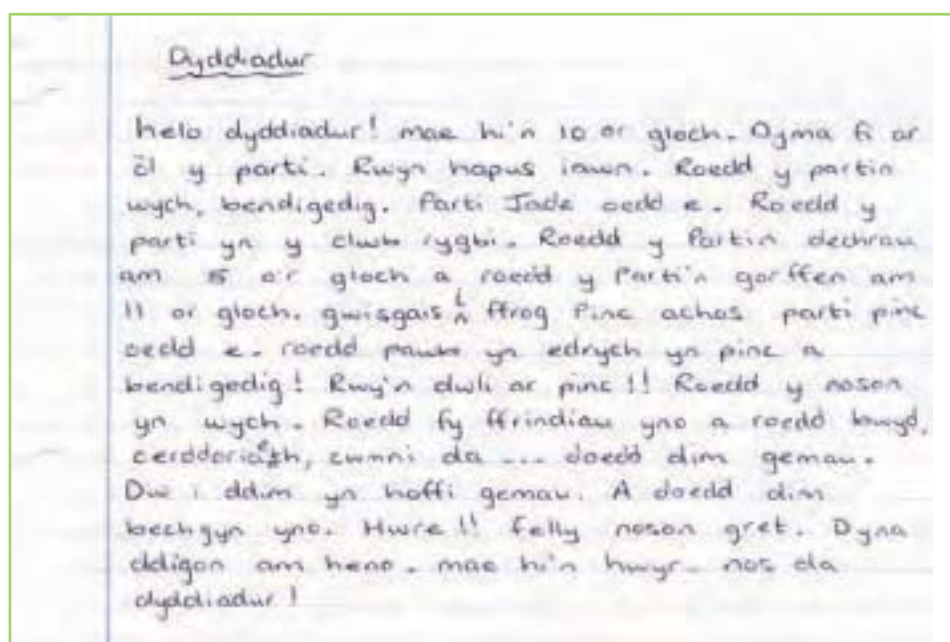 Dyddiadur
helo dyddiadur! mae hi'n 10 or gloch. Dyma fi ar
ôl y parti. Rwyn hapus iawn. Roedd y partin
wych, bendigedig. Parti Jade oedd e. Roedd y
parti yn y clwb rygbi. Roedd y Partin dechrau
am 5 o'r gloch a roedd y Parti'n gorffen am
11 or gloch. gwisgais i ffrog Pinc achos parti pinc
oedd e. roedd pawb yn edrych yn pinc a
bendigedig! Rwy'n dwli ar pinc!! Roedd y noson
yn wych. Roedd fy ffrindiau yno a roedd bwyd,
cerddoriaeth, cwmni da --- doedd dim gemau.
Dw i ddim yn hoffi gemau. A doedd dim
bechgyn yno. Hwre!! felly noson gret. Dyna
ddigon am heno. mae hi'n hwyr. nos da
dyddiadur!